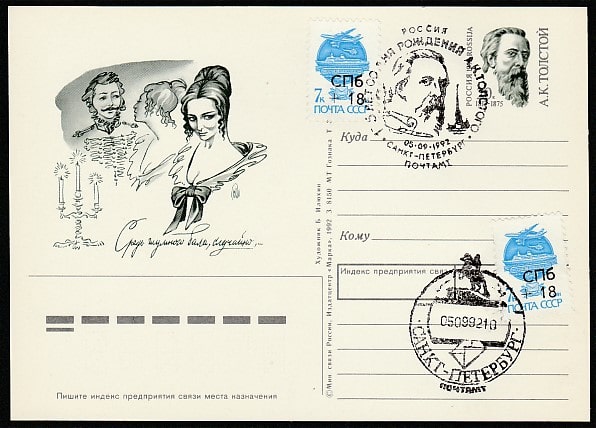 Средь шумного бала, случайно,...
Пишите индекс предприятия связи места назначения
© Мин связи России, Издатцентр «Марка», 1992 З 8150 МТ Гознака
Художник Б. Илюхин
7к
ПОЧТА СССР
СПб
+ 18
РОССИЯ
ЛЕТ СО ДНЯ РОЖДЕНИЯ А.К.ТОЛСТОГО
05-09-1992
САНКТ-ПЕТЕРБУРГ
ПОЧТАМТ
РОССИЯ ROSSIJA
1875
А.К.ТОЛСТОЙ
Куда
Кому
Индекс предприятия связи
СПб
+ 18
ПОЧТА СССР
05099210
САНКТ-ПЕТЕРБУРГ
ПОЧТАМТ